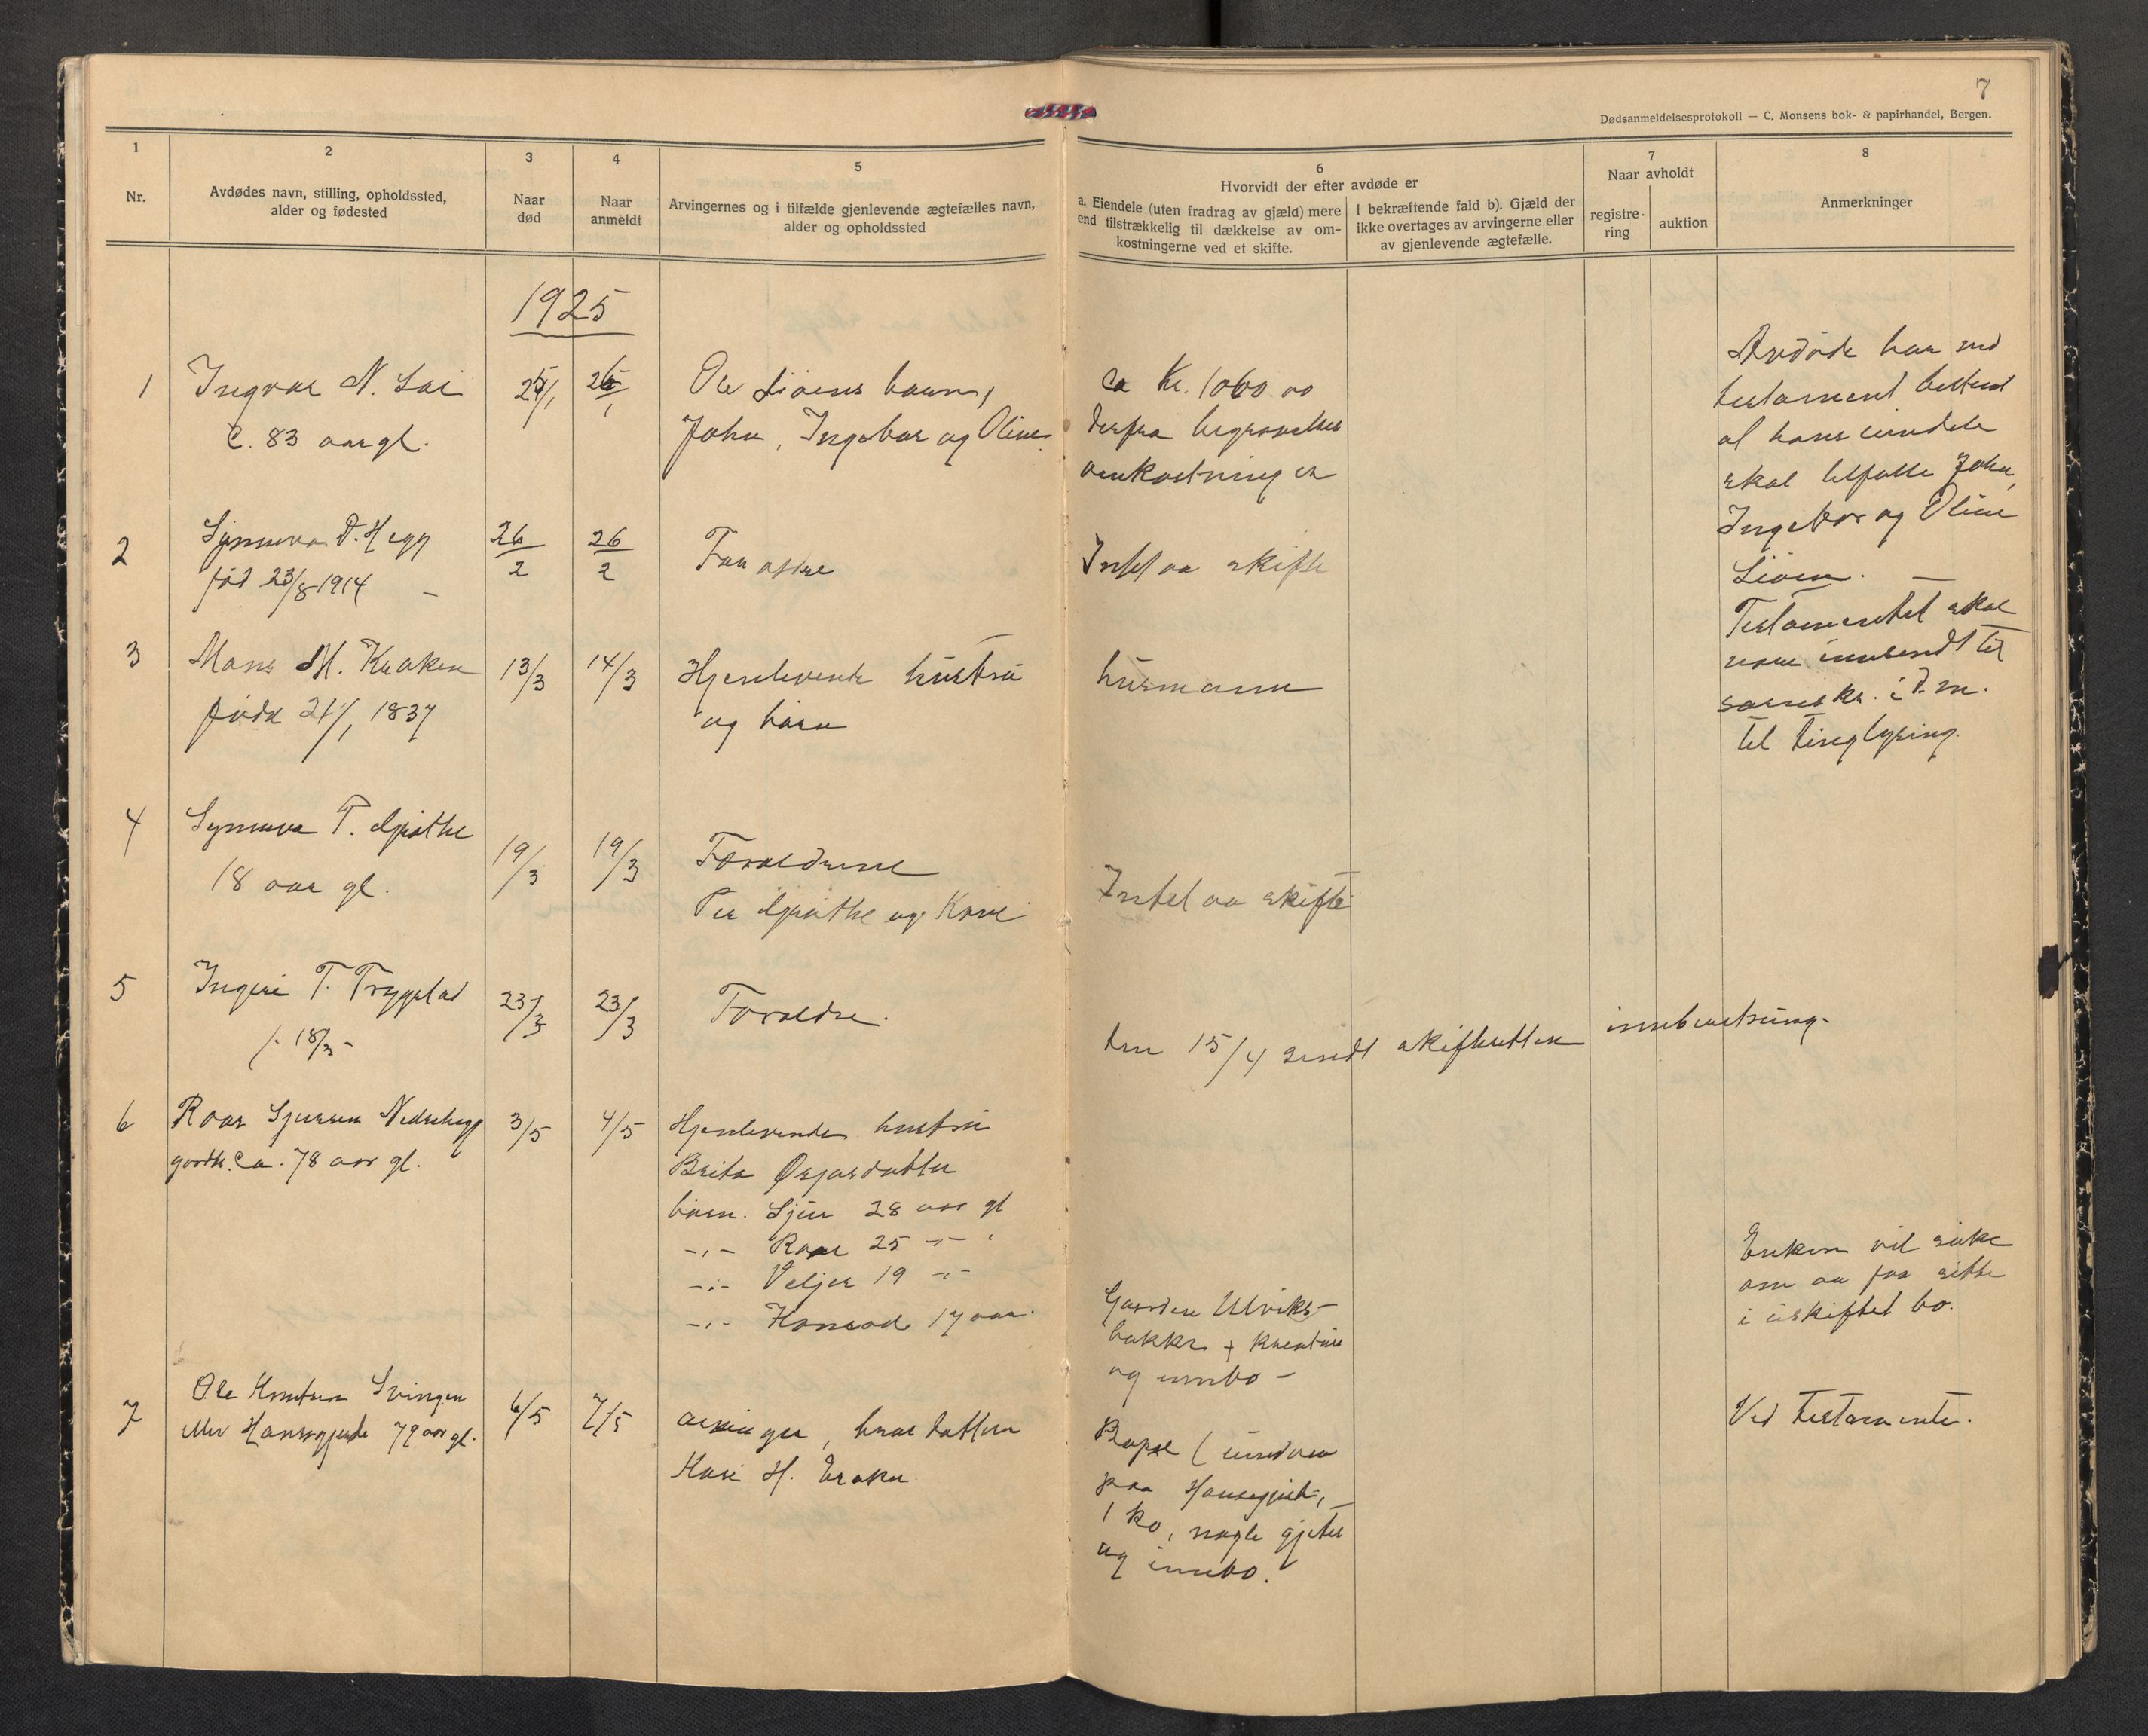 7
Dødsanmeldelsesprotokoll — C. Monsens bok- & papirhandel, Bergen.
1
Nr.
2
Avdødes navn, stilling, opholdssted,
alder og fødested
3
Naar
død
4
Naar
anmeldt
5
Arvingernes og i tilfælde gjenlevende ægtefælles navn,
alder og opholdssted
6
Hvorvidt der efter avdøde er
a. Eiendele (uten fradrag av gjæld) mere
end tilstrækkelig til dækkelse av om-
kostningerne ved et skifte.
I bekræftende fald b). Gjæld der
ikke overtages av arvingerne eller
av gjenlevende ægtefælle.
7
Naar avholdt
registre-
ring
auktion
8
Anmerkninger
1925
1
Ingvar N.
C. 83 aar gl.
25/1
26/1
Ole Lioens barn,
John, Ingebor og Oline
ca Kr. 1060.00
derfra begravelses
omkostninger
Avdøde har ved
testament bestemt
at hans eiendele
skal tilfalle John,
Ingebor og Oline
Lioen. —
Testamentet skal
være innsendt til
sorenskr. i D. m.
til tinglysing.
2
Synneva D. Hegg
fød 23/8 1914 –
26/2
26/2
Intet aa skifte
3
Mons M. Kraken
fødd 21/1 1837
13/3
14/3
Hjenlevende hustru
og barn
husmann
4
Synneva P.
18 aar gl.
19/3
19/3
Foreldrene
Per og Kari
Intet aa skifte
5
Ingeri T. Trygstad
f. 18/3 –
23/3
23/3
Foreldre.
den 15/4 sendt skifteretten innberetning.
6
Roar Sjursen Nedrehegg
gardbr. Ca. 78 aar gl.
3/5
4/5
Hjenlevende hustru
Brita Ørjasdatter
barn. Sjur 28 aar gl
-,- Roar 25 -,-
-,- Veljer 19 -,-
-,- Konrad 17 aar.
Garden Ulviks-
bakke + kreature
og innbo –
Enken vil søke
om aa faa sitte
i uskiftet bo.
7
Ole Knutsen Svingen
eller Hansegjerde 79 aar gl.
6/5
7/5
arvinger, brordatter
Kari H. Eraker
paa Hansegjerde, –
1 ko, nogle gjeter
og innbo.
Ved testamente.